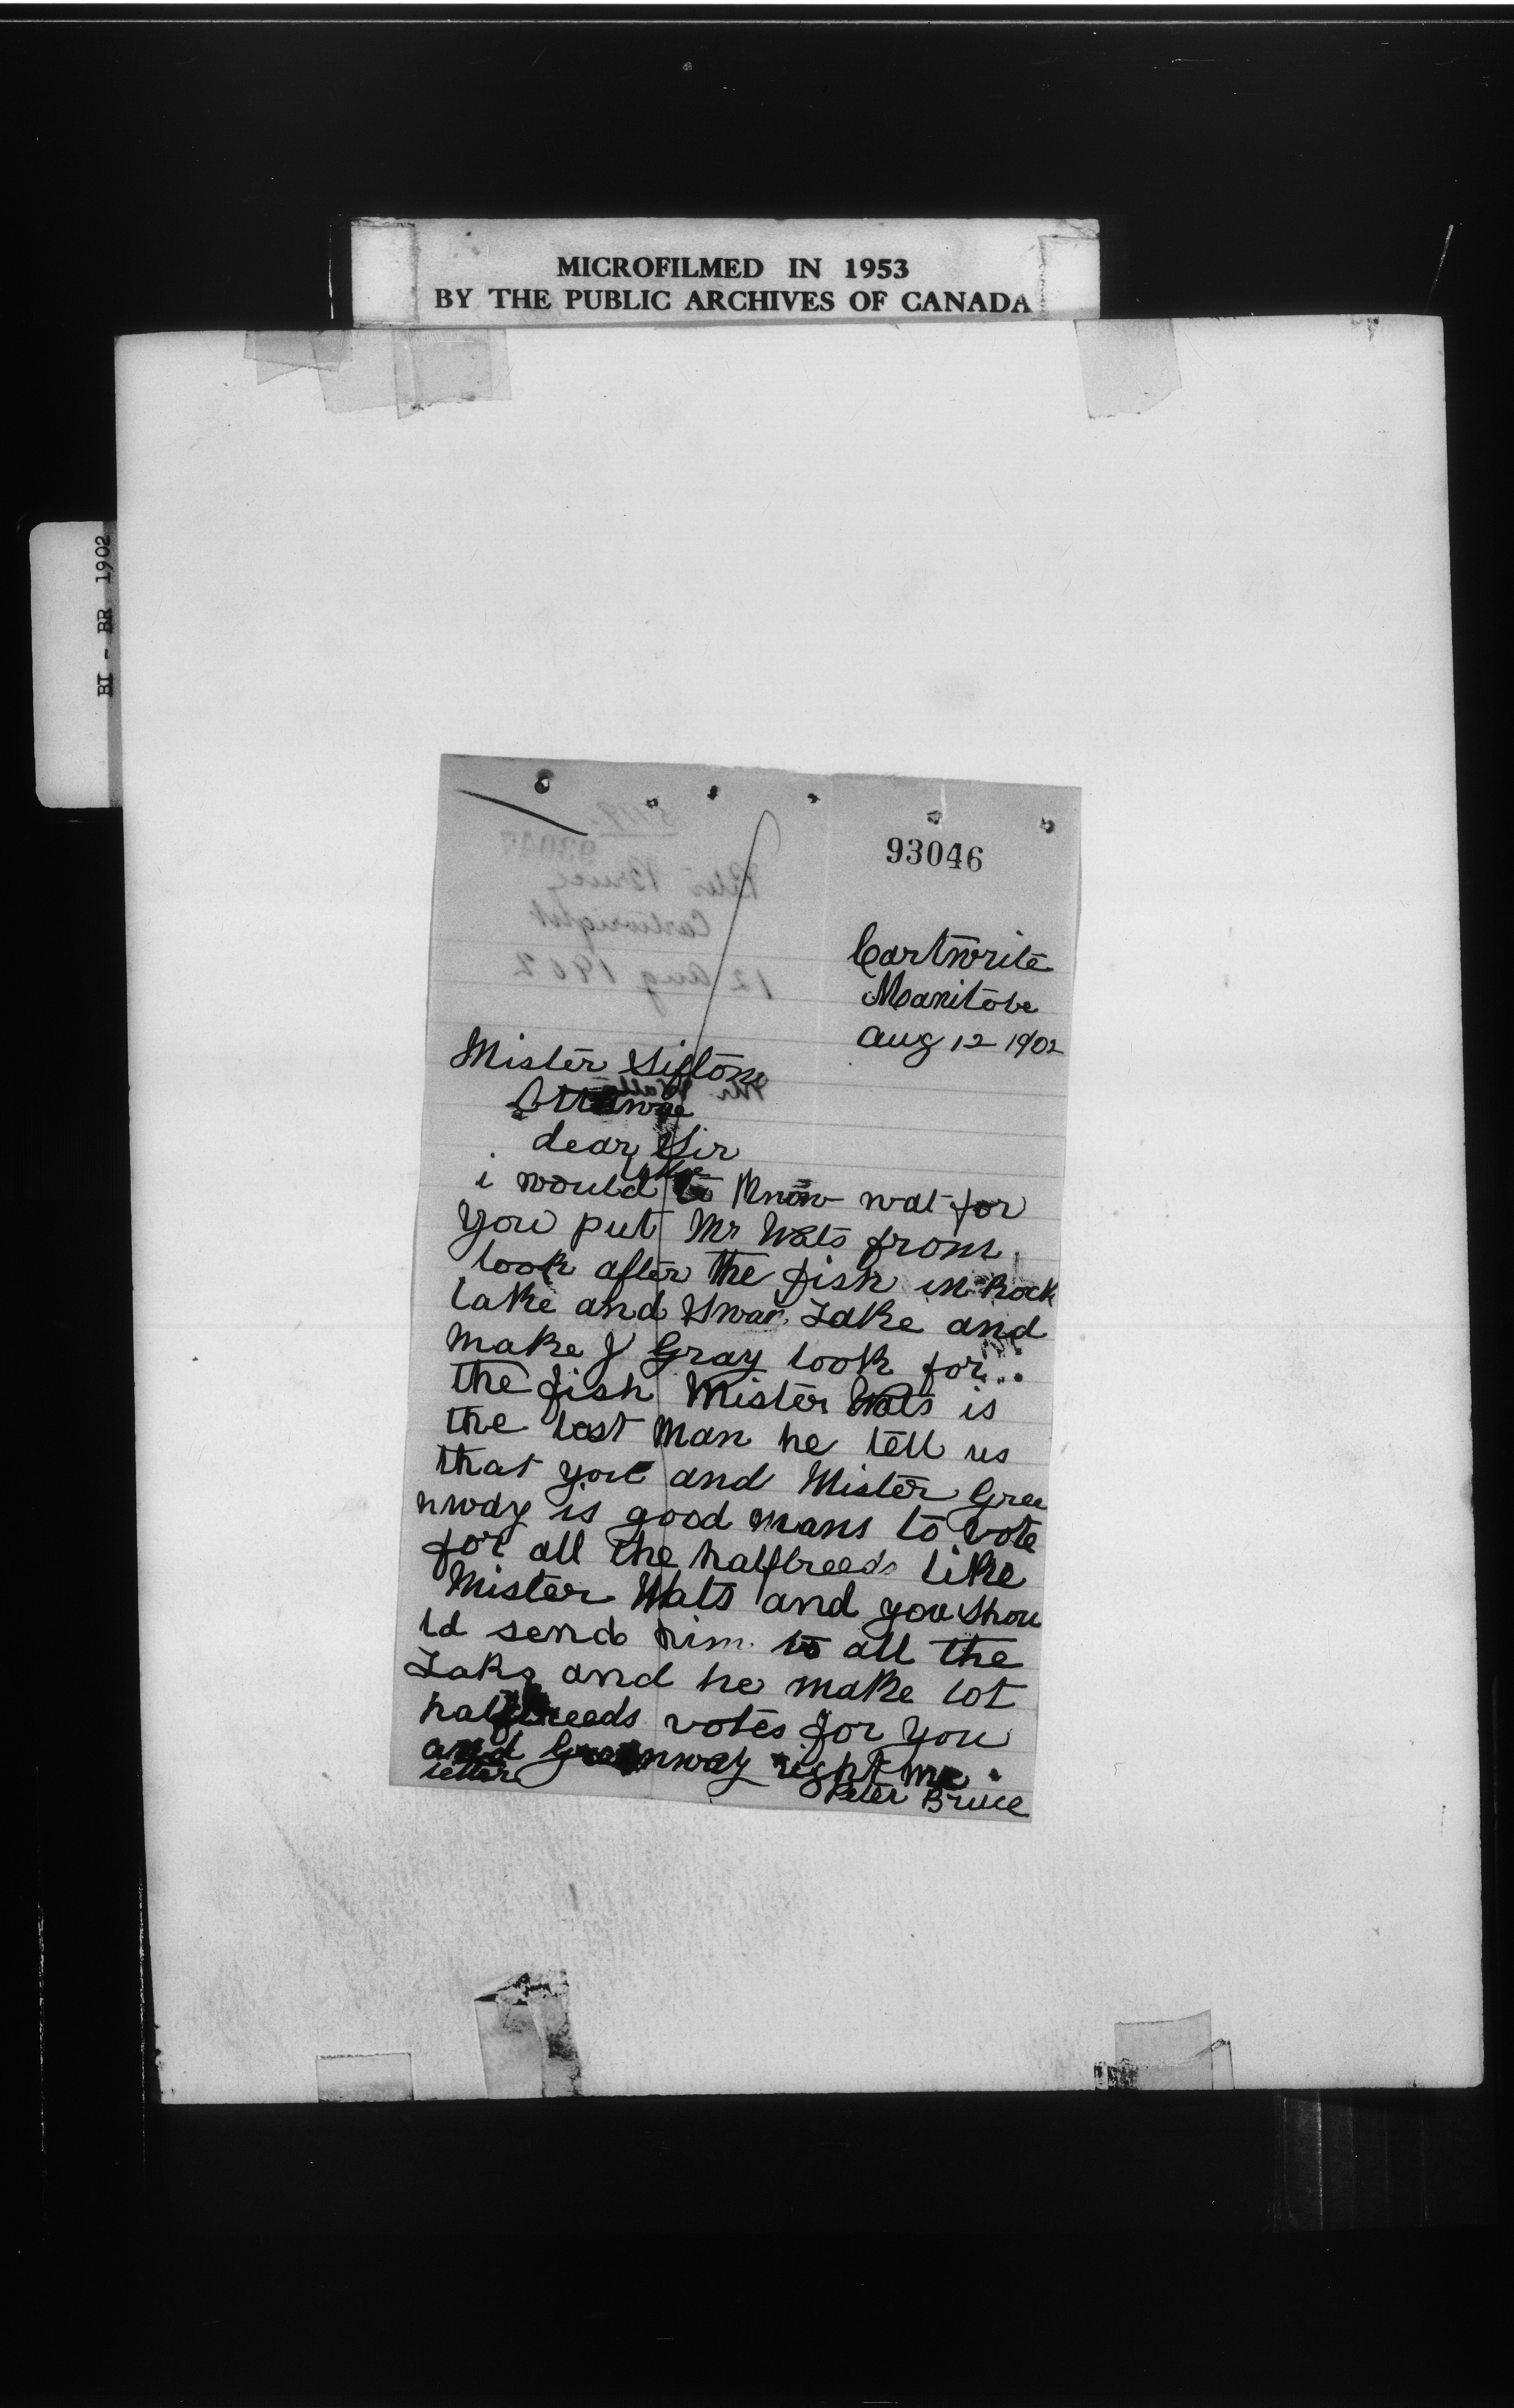 MICROFILMED IN 1953
BY THE PUBLIC ARCHIVES OF CANADA
BI - BR 1902
93046
Cartwrite
Manitobe
Aug 12 1902
Mister Siftone
Ottawae
dear Sir
i would like to know wat for
you put Mr Wats from
look after the fish in Rock
lake and Swan Lake and
make J Gray look for
the fish Mister Wats is
the best man he tell us
that you and Mister Gree
nway is good mans to vote
for all the halfbreeds like
Mister Wats and you shou
ld send him to all the
Laks and he make lot
halfbreeds votes for you
and Greenway right me
letter
Peter Bruce